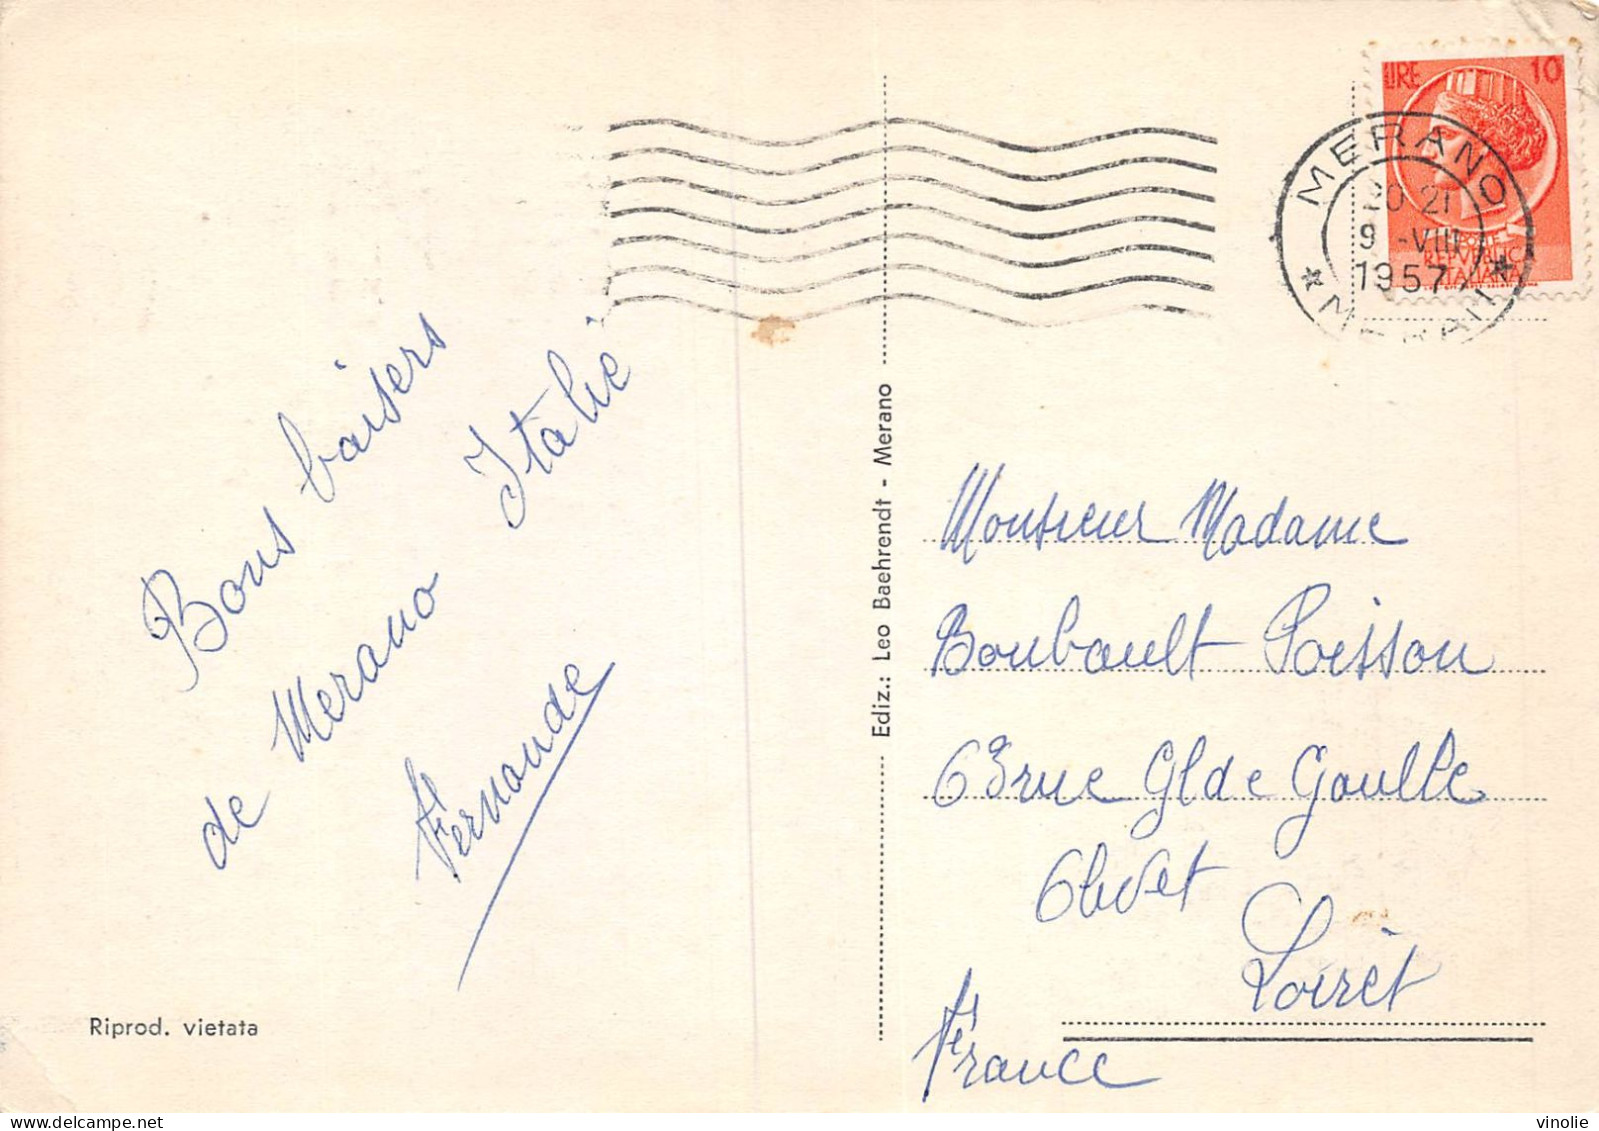 LIRE 10
MERANO
20 21
9 -VIII
1957
MERAN
POSTE
REPVBBLICA
ITALIANA
Bons baisers
de Merano Italie
Fernande
Riprod. vietata
Ediz.: Leo Baehrendt - Merano
Monsieur Madame
Boubault Poisson
63 rue Gl de Gaulle
Olivet
Loiret
France
vinolie